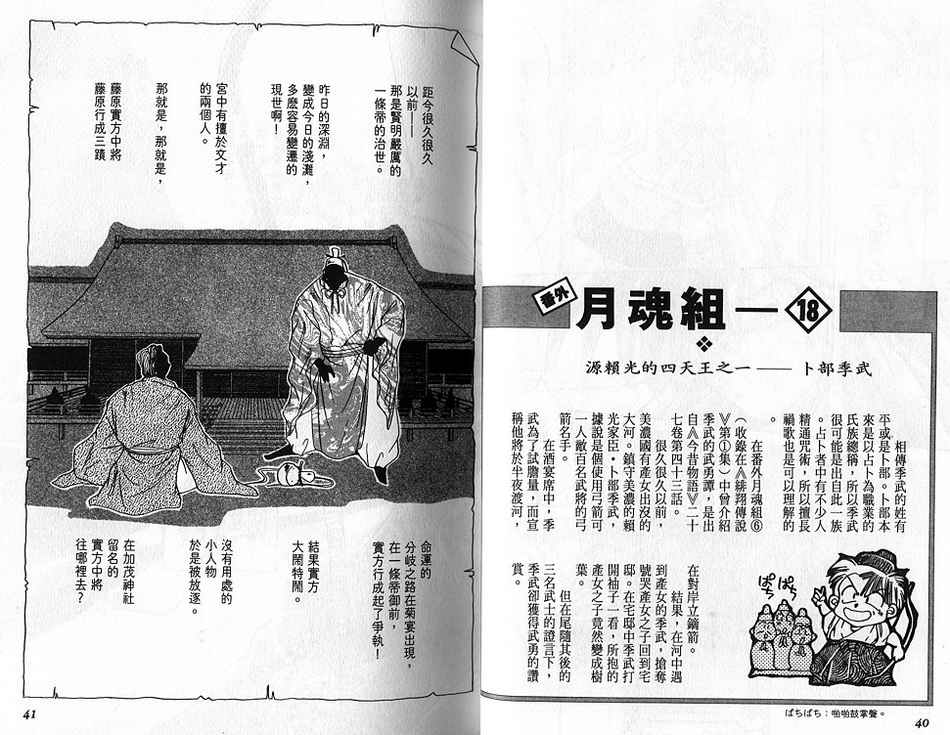 番外
月魂組—18
源賴光的四天王之一——卜部季武
相傳季武的姓有
平或是卜部。卜部本
來是以占卜為職業的
氏族總稱，所以季武
很可能是出自此一族
。占卜者中有不少人
精通咒術，所以擅長
禍歌也是可以理解的
。
在番外月魂組⑥
（收錄在《緋翔傳說
》第①集）中曾介紹
季武的武勇譚，是出
自《今昔物語》二十
七卷第四十三話。
很久很久以前，
美濃國有產女出沒的
大河。鎮守美濃的賴
光家臣・卜部季武，
據說是個使用弓箭可
一人敵百名武將的弓
箭名手。
在酒宴席中，季
武為了試膽量，而宣
稱他將於半夜渡河，
在對岸立鏑箭。
結果，在河中遇
到產女的季武，搶奪
號哭產女之子回到宅
邸。在宅邸中季武打
開袖子一看，所抱的
產女之子竟然變成樹
葉。
但在尾隨其後的
三名武士的證言下，
季武卻獲得武勇的讚
賞。
ぱちぱち
ぱちぱち：啪啪鼓掌聲。
40
距今很久很久
以前——
那是賢明嚴厲的
一條帝的治世。
昨日的深淵，
變成今日的淺灘，
多麼容易變遷的
現世啊！
宮中有擅於文才
的兩個人。
那就是，那就是，
藤原實方中將
藤原行成三蹟
命運的
分岐之路在菊宴出現，
在一條帝御前，
實方行成起了爭執！
結果實方
大鬧特鬧。
沒有用處的
小人物
於是被放逐。
在加茂神社
留名的
實方中將
往哪裡去？
41